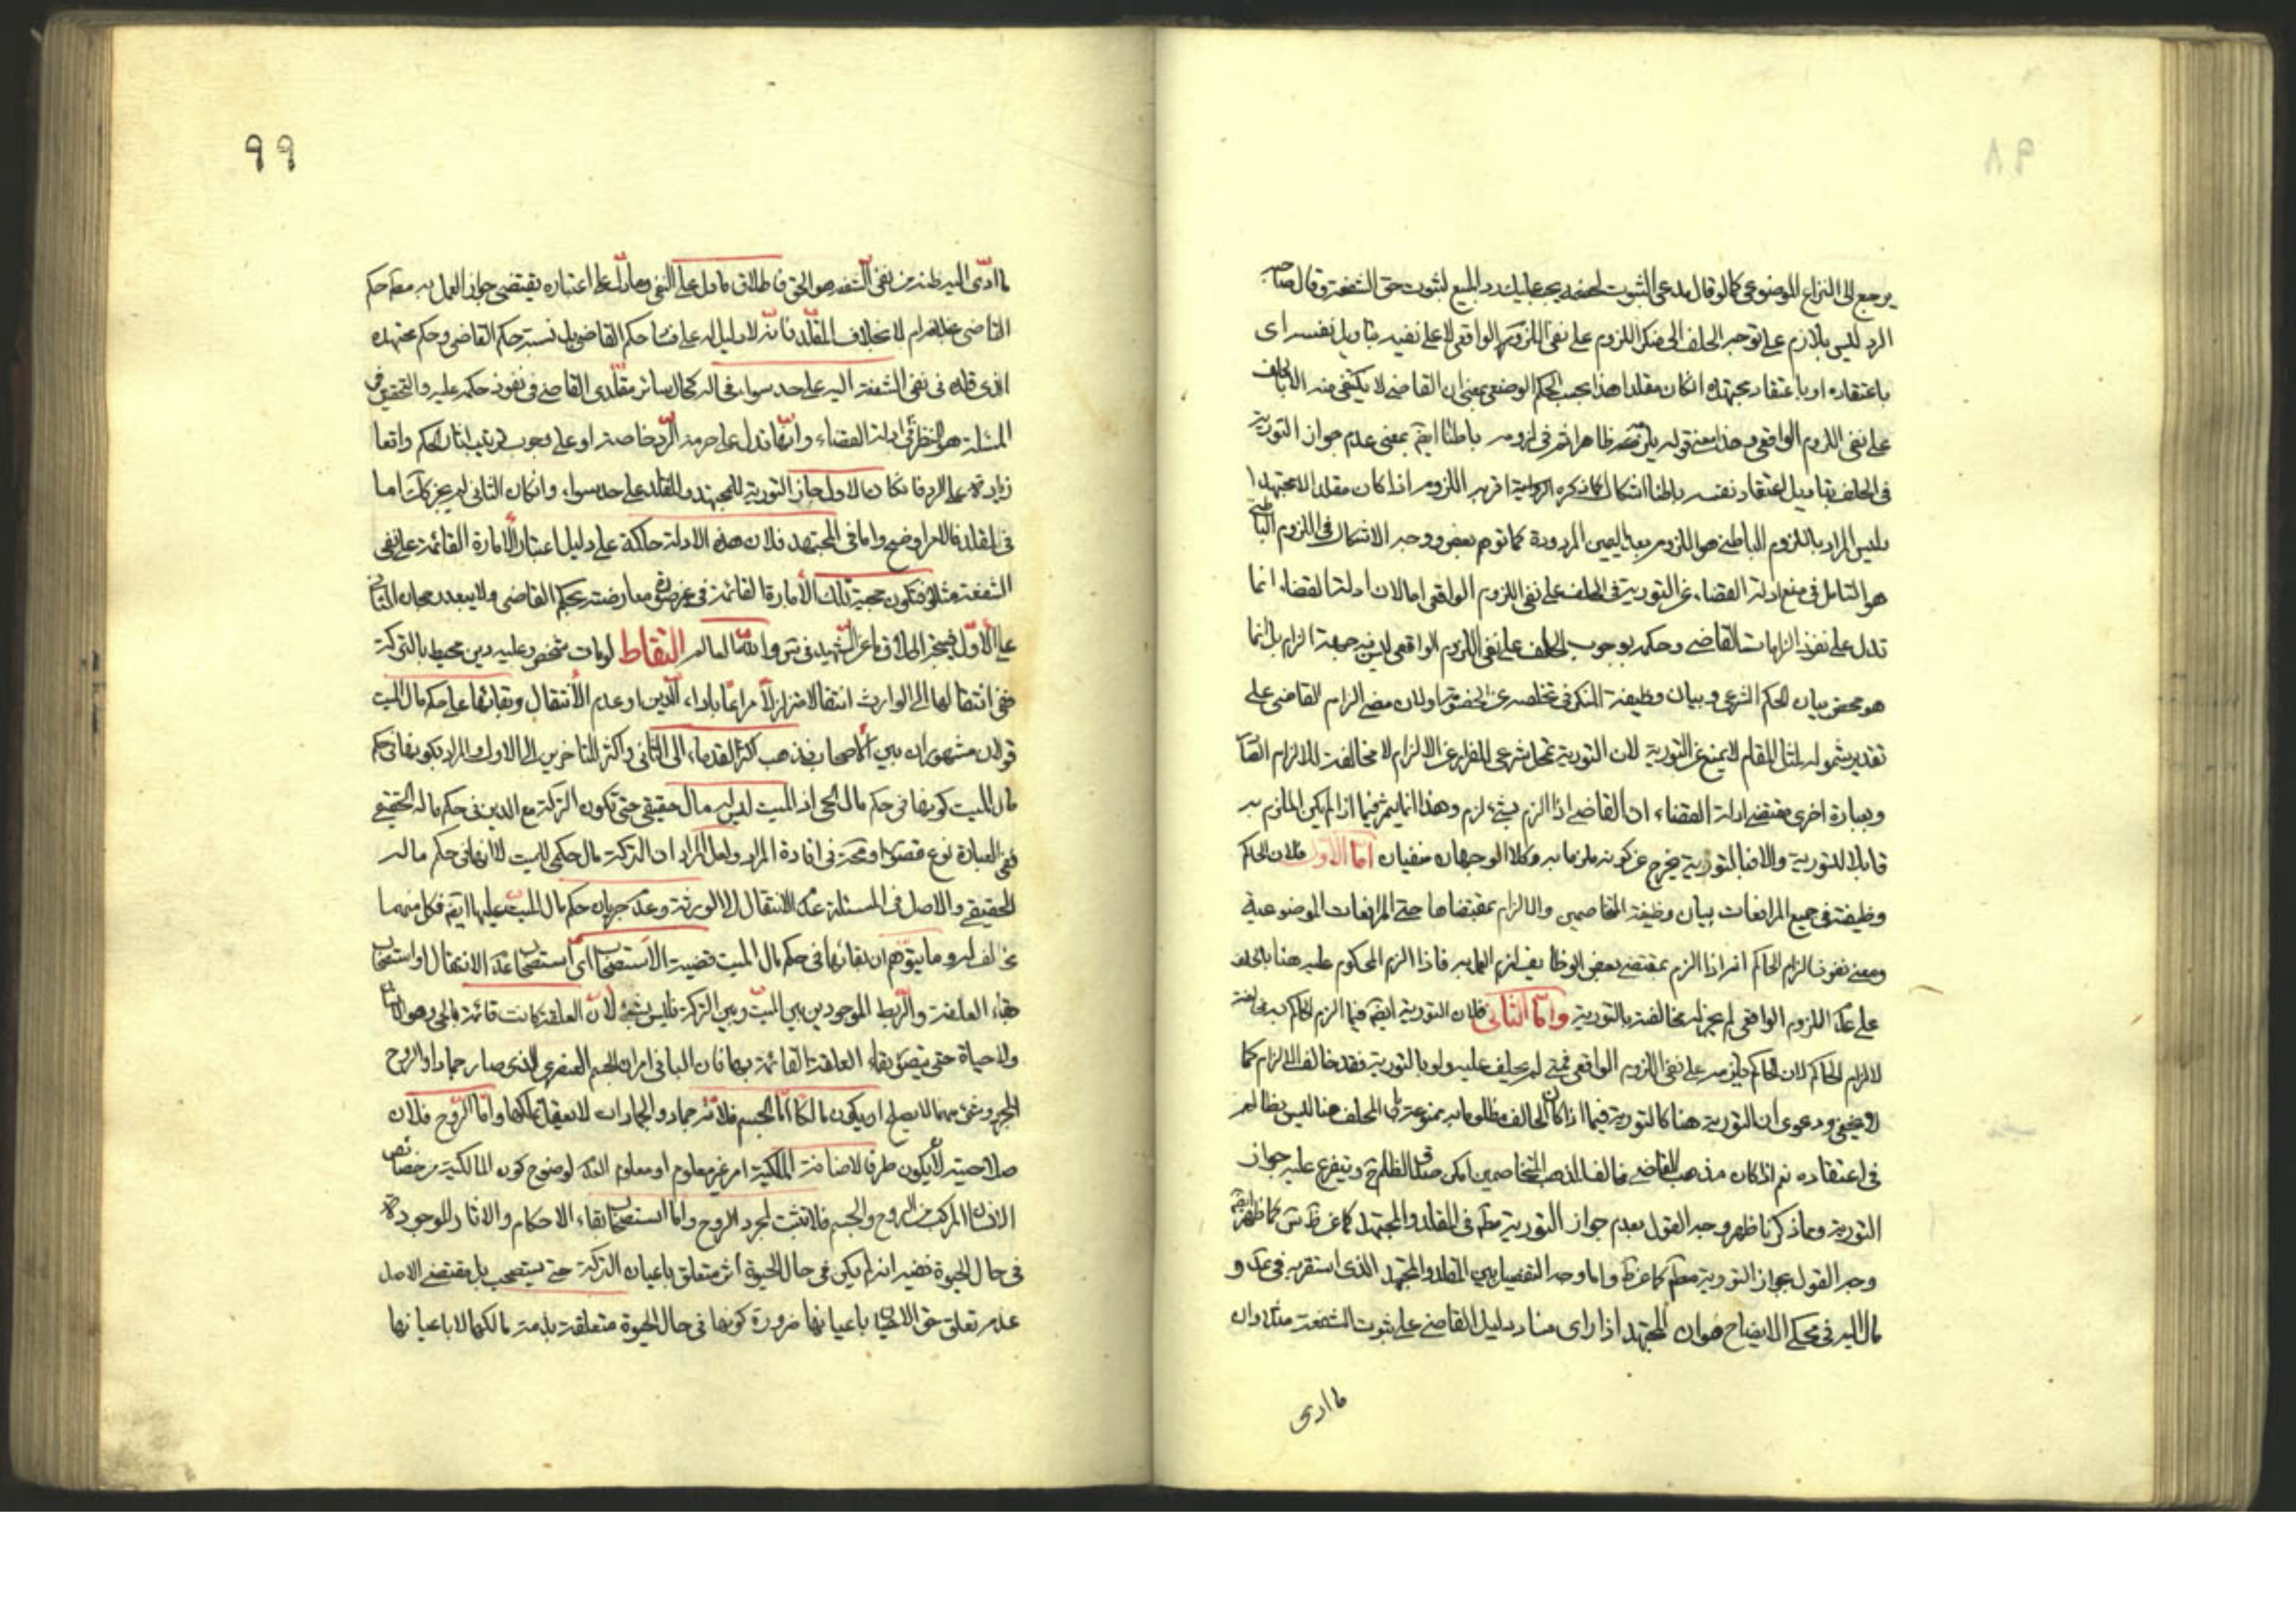 يرجع الى النزاع الموضوعى كما لو قال مدعى الثبوت لخصمه يجب عليك رد المبيع لثبوت حق الشفعة وقال صاحبه
الرد ليس بلازم على توجه الحلف الى منكر اللزوم على نفى اللزوم الواقعى لا على نفيه بتاويل نفسه اى
باعتقاده او باعتقاد مجتهده انكان مقلدا هذا بحسب الحكم الوضعى بمعنى ان القاضى لا يكتفى منه الا بالحلف
على نفى اللزوم الواقعى وهذا معنى قوله ظاهرا نعم فى لزومه باطنا ايضا بمعنى عدم جواز التورية
فى الحلف بتاويل اعتقاد نفسه باطنا اشكال كما ذكره اقربه اللزوم اذا كان مقلدا لا مجتهدا
وليس المراد باللزوم الباطنى هو اللزوم بعد اليمين المردودة كما توهم بعض ووجه الاشكال فى اللزوم الباطنى
هو التامل فى منع ادلة القضاء عن التورية فى الحلف على نفى اللزوم الواقعى اما لان ادلة القضاء انما
تدل على نفوذ الزامات القاضى وحكمه بوجوب الحلف على نفى اللزوم الواقعى ليس فيه جهة الزام بل انما
هو محض بيان الحكم الشرعى وبيان وظيفة المنكر فى تخلصه عن الخصومة او لان معنى الزام القاضى على
تقدير شموله لمثل المقام لا يمنع عن التورية لان التورية تمحل شرعى للفرار عن الالزام لا مخالفة للالزام القا
وبعبارة اخرى مقتضى ادلة القضاء ان القاضى اذا الزم بشىء لزم وهذا انما يثمر فيما اذا لم يكن الملزم به
قابلا للتورية والا فبالتورية يخرج عن كونه ملزما به وكلا الوجهان منفيان اما الاول فلان الحاكم
وظيفته فى جميع المرافعات بيان وظيفة المتخاصمين والالزام بمقتضاها حتى المرافعات الموضوعية
ومعنى نفوذ الزام الحاكم انه اذا الزم بمقتضى بعض الوظايف لزم العمل به فاذا الزم المحكوم عليه هنا بالحلف
على عدم اللزوم الواقعى لم يجز له مخالفته بالتورية واما الثانى فلان التورية ايضا فيما الزم الحاكم به مخالفة
لالزام الحاكم لان الحاكم يلزمه على نفى اللزوم الواقعى فمتى لم يحلف عليه ولو بالتورية فقد خالف الالزام كما
لا يخفى ودعوى ان التورية هنا كالتورية فيما اذا كان الحالف مظلوما به ممنوعة بل المحلف هنا ليس بظالم
فى اعتقاده نعم اذا كان مذهب القاضى مخالفا لمذهب المتخاصمين امكن صدق الظلم ويتفرع عليه جواز
التورية ومما ذكرنا ظهر وجه القول بعدم جواز التورية مطلقا فى المقلد والمجتهد كما عن ظ س كما ظهر ايضا
وجه القول بجواز التورية مطلقا كما عن واما وجه التفصيل بين المقلد والمجتهد الذى استقربه فى عد و
مال اليه فى محكى الايضاح فهو ان المجتهد اذا راى فساد دليل القاضى على ثبوت الشفعة مثلا وان
ما ادى
٩٩
ما ادى اليه ظنه من نفى الشفعة هو الحق فاطلاق ما دل على النفى وما دل على اعتباره يقتضى جواز العمل به مطلقا حكم
القاضى بخلافه ام لا بخلاف المقلد فانه لا دليل له على فساد حكم القاضى بل نسبة حكم القاضى وحكم مجتهده
الذى قلده فى نفى الشفعة اليه على حد سواء فحاله كحال سائر مقلدى القاضى فى نفوذ حكمه عليه والتحقيق فى
المسئلة هو النظر فى ادلة القضاء وانها تدل على حرمة الرد خاصة او على وجوب ترتيب اثار الحكم واقعا
زيادة على الرد فانكان الاول جاز التورية للمجتهد والمقلد على حد سواء وانكان الثانى لم يجز كك اما
فى المقلد فالامر واضح واما فى المجتهد فلان هذه الادلة حاكمة على دليل اعتبار الامارة القائمة على نفى
الشفعة مثلا فتكون حجية تلك الامارة القائمة فى غير صورة معارضته بحكم القاضى ولا يبعد رجحان الثانى
على الاول فيتجه اطلاق ما عن الشهيد فى س والله العالم التقاط لو مات شخص وعليه دين محيط بالتركة
ففى انتقالها الى الوارث انتقالا متزلزلا مراعا باداء الدين او عدم الانتقال وبقائها على حكم مال الميت
قولان مشهوران بين الاصحاب فذهب اكثر القدماء الى الثانى واكثر المتاخرين الى الاول والمراد بكونها فى حكم
مال الميت كونها فى حكم ماله الحى اذ الميت ليس له مال حقيقى حتى تكون التركة مع الدين فى حكم ماله الحقيقى
ففى العبارة نوع قصور او مسامحة فى افادة المراد ولعل المراد ان التركة مال حكمى للميت لا انها فى حكم ماله
الحقيقى والاصل فى المسئلة عدم الانتقال الى الورثة وعدم جريان حكم مال الميت عليها ايضا فكل منهما
مخالف له وما يتوهم ان بقائها فى حكم مال الميت قضية الاستصحاب اى استصحاب عدم الانتقال او استصحاب
بقاء العلقة والربط الموجودين بين الميت وبين التركة فليس بشىء لان العلقة كانت قائمة بالحى وهو الان
ولا حياة حتى يتصور بقاء العلقة القائمة بها فان الباقى امران الجسم العنصرى الذى صار جمادا والروح
المجرد وشىء منهما لا يصلح ان يكون مالكا اما الجسم فلانه جماد والجمادات لا يعقل تملكها واما الروح فلان
صلاحيته لان يكون طرفا لاضافة الملكية امر غير معلوم او معلوم العدم لوضوح كون المالكية من خصائص
الانسان المركب من الروح والجسم فلا تثبت لمجرد الروح واما استصحاب بقاء الاحكام والاثار الموجودة
فى حال الحيوة ففيه انه لم يكن فى حال الحيوة اثر متعلق باعيان التركة حتى يستصحب بل مقتضى الاصل
عدم تعلق حق الديان باعيانها ضرورة كونها فى حال الحيوة متعلقة بذمة مالكها لا باعيانها